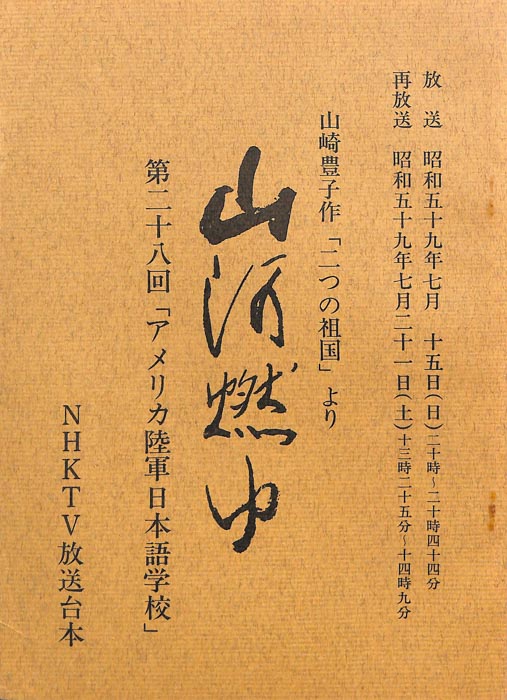 放送　昭和五十九年七月　十五日(日)二十時～二十時四十四分
再放送　昭和五十九年七月二十一日(土)十三時二十五分～十四時九分
山崎豊子作「二つの祖国」より
山河燃ゆ
第二十八回「アメリカ陸軍日本語学校」
NHKTV放送台本